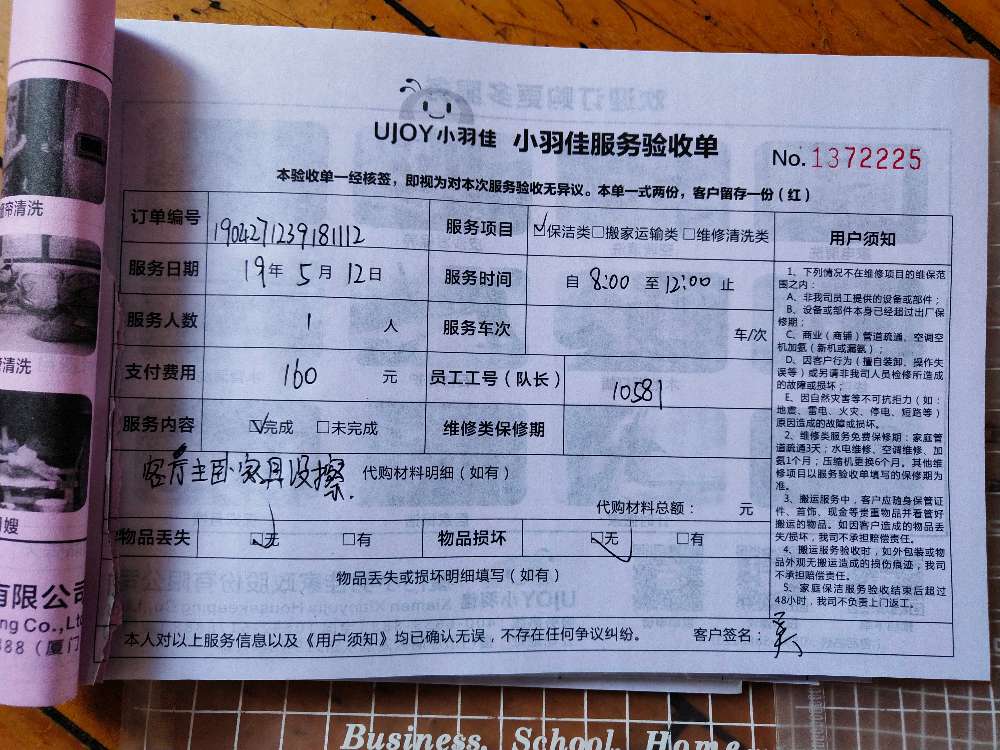 欢迎订购更多服务
UJOY小羽佳 小羽佳服务验收单
No.1372225
本验收单一经核签，即视为对本次服务验收无异议。本单一式两份，客户留存一份(红)
订单编号 1904271239181112 服务项目 ☑保洁类□搬家运输类□维修清洗类
服务日期 19年5月12日 服务时间 自8:00至12:00止
服务人数 1 人 服务车次 车/次
支付费用 160 元 员工工号(队长) 10581
服务内容 ☑完成 □未完成 维修类保修期
客厅主卧家具没擦. 代购材料明细(如有)
代购材料总额： 元
物品丢失 ☑无 □有 物品损坏 ☑无 □有
物品丢失或损坏明细填写(如有)
本人对以上服务信息以及《用户须知》均已确认无误，不存在任何争议纠纷。 客户签名：
用户须知
1、下列情况不在维修项目的维保范
围之内：
A、非我司员工提供的设备或部件；
B、设备或部件本身已经超过出厂保
修期；
C、商业(商铺)管道疏通、空调空
机加氨(新机或漏氨)；
D、因客户行为(擅自装卸、操作失
误等)或另请非我司人员检修所造成
的故障或损坏；
E、因自然灾害等不可抗拒力(如：
地震、雷电、火灾、停电、短路等)
原因造成的故障或损坏。
2、维修类服务免费保修期：家庭管
道疏通3天；水电维修、空调维修、加
氨1个月；压缩机更换6个月。其他维
修项目以服务验收单填写的保修期为
准。
3、搬运服务中，客户应随身保管证
件、首饰、现金等贵重物品并看管好
搬运的物品。如因客户造成的物品丢
失/损坏，我司不承担赔偿责任。
4、搬运服务验收时，如外包装或物
品外观无搬运造成的损伤痕迹，我司
不承担赔偿责任。
5、家庭保洁服务验收结束后超过
48小时，我司不负责上门返工。
窗帘清洗
清洗
嫂
有限公司
ng Co.,Ltd
88（厦门
Business, School, Home,